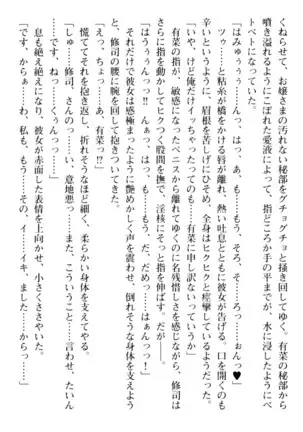 くねらせて、お嬢さまの汚れない秘部をグチョグチョと掻き回してゆく。有菜の秘部から
噴き溢れるようにこぼれた愛液によって、指どころか手の平までが、水に浸したようにべ
トベトになっていた。
「はみゅぅぅっ……ん、はっ、あ……もう、そろ、そ……ろっ……おんっ♥」
ツゥ……と粘糸が橋をかける唇が離れ、熱い吐息とともに彼女が告げる。口を開くのも
辛いというように、眉根を苦しげにひそめ、全身はヒクヒクと痙攣しているようだった。
「いや、けど俺だけイっちゃったってのも……有菜に申し訳ないっていうか」
有菜の指が、敏感になったペニスから離れてゆくのに名残惜しさを感じながら、修司は
さらに指を動かしてヒクつく股間を撫で、淫核にそっと指を伸ばす。だが――。
「はぅぅんっっ！ んぁっ、はっ、も……もう、だ、だめっ……はぁんっっ！」
それだけで彼女は感極まったように艶めかしく声を震わせ、倒れそうな身体を支えよう
と、修司の腰に腕を回して抱きついてきた。
「えっ、ちょっ……あ、有菜!?」
慌ててそれを抱き返し、折れそうなほど細く、柔らかい身体を支えてやる。
「しゅ……修司、さんのっ……い、意地悪っ……また、こういうこと……言わせ、たいん
……です、ね……っくぅんっっ……」
息も絶え絶えになり、彼女が赤面した表情を上向かせ、小さくささやいた。
「です、からぁ……わ、私も、もう……その、イ……イキ、ました……からっ……」